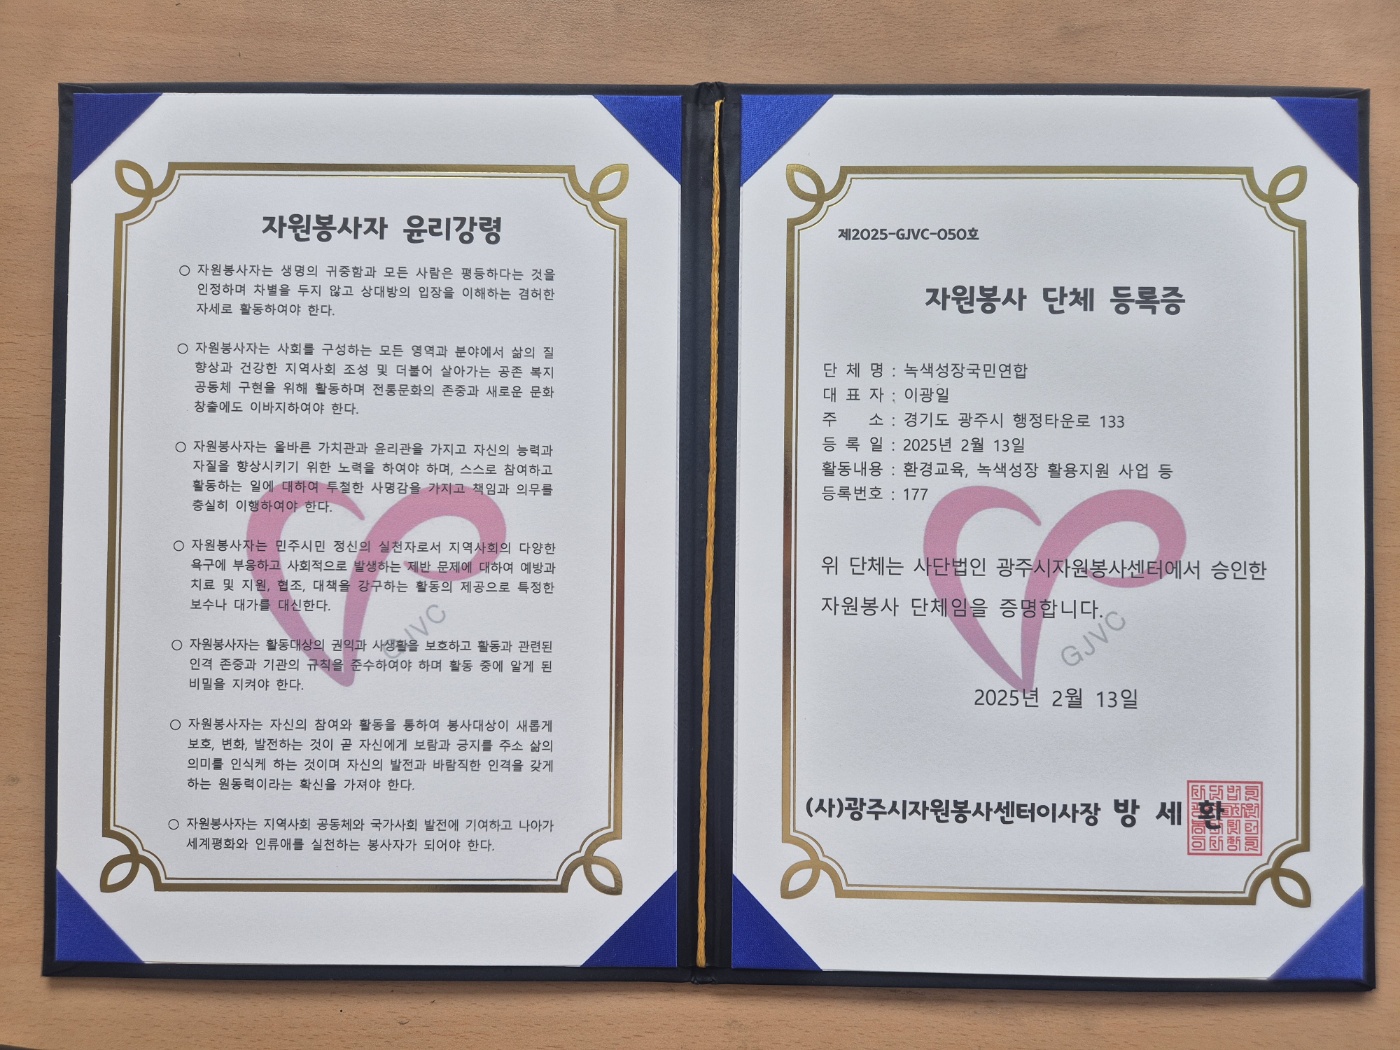 자원봉사자 윤리강령
○ 자원봉사자는 생명의 귀중함과 모든 사람은 평등하다는 것을
인정하며 차별을 두지 않고 상대방의 입장을 이해하는 겸허한
자세로 활동하여야 한다.
○ 자원봉사자는 사회를 구성하는 모든 영역과 분야에서 삶의 질
향상과 건강한 지역사회 조성 및 더불어 살아가는 공존 복지
공동체 구현을 위해 활동하며 전통문화의 존중과 새로운 문화
창출에도 이바지하여야 한다.
○ 자원봉사자는 올바른 가치관과 윤리관을 가지고 자신의 능력과
자질을 향상시키기 위한 노력을 하여야 하며, 스스로 참여하고
활동하는 일에 대하여 투철한 사명감을 가지고 책임과 의무를
충실히 이행하여야 한다.
○ 자원봉사자는 민주시민 정신의 실천자로서 지역사회의 다양한
욕구에 부응하고 사회적으로 발생하는 제반 문제에 대하여 예방과
치료 및 지원, 협조, 대책을 강구하는 활동의 제공으로 특정한
보수나 대가를 대신한다.
○ 자원봉사자는 활동대상의 권익과 사생활을 보호하고 활동과 관련된
인격 존중과 기관의 규칙을 준수하여야 하며 활동 중에 알게 된
비밀을 지켜야 한다.
○ 자원봉사자는 자신의 참여와 활동을 통하여 봉사대상이 새롭게
보호, 변화, 발전하는 것이 곧 자신에게 보람과 긍지를 주소 삶의
의미를 인식케 하는 것이며 자신의 발전과 바람직한 인격을 갖게
하는 원동력이라는 확신을 가져야 한다.
○ 자원봉사자는 지역사회 공동체와 국가사회 발전에 기여하고 나아가
세계평화와 인류애를 실천하는 봉사자가 되어야 한다.
GJVC
제2025-GJVC-050호
자원봉사 단체 등록증
단 체 명 : 녹색성장국민연합
대 표 자 : 이광일
주 소 : 경기도 광주시 행정타운로 133
등 록 일 : 2025년 2월 13일
활동내용 : 환경교육, 녹색성장 활용지원 사업 등
등록번호 : 177
위 단체는 사단법인 광주시자원봉사센터에서 승인한
자원봉사 단체임을 증명합니다.
GJVC
2025년 2월 13일
(사)광주시자원봉사센터이사장 방 세 환